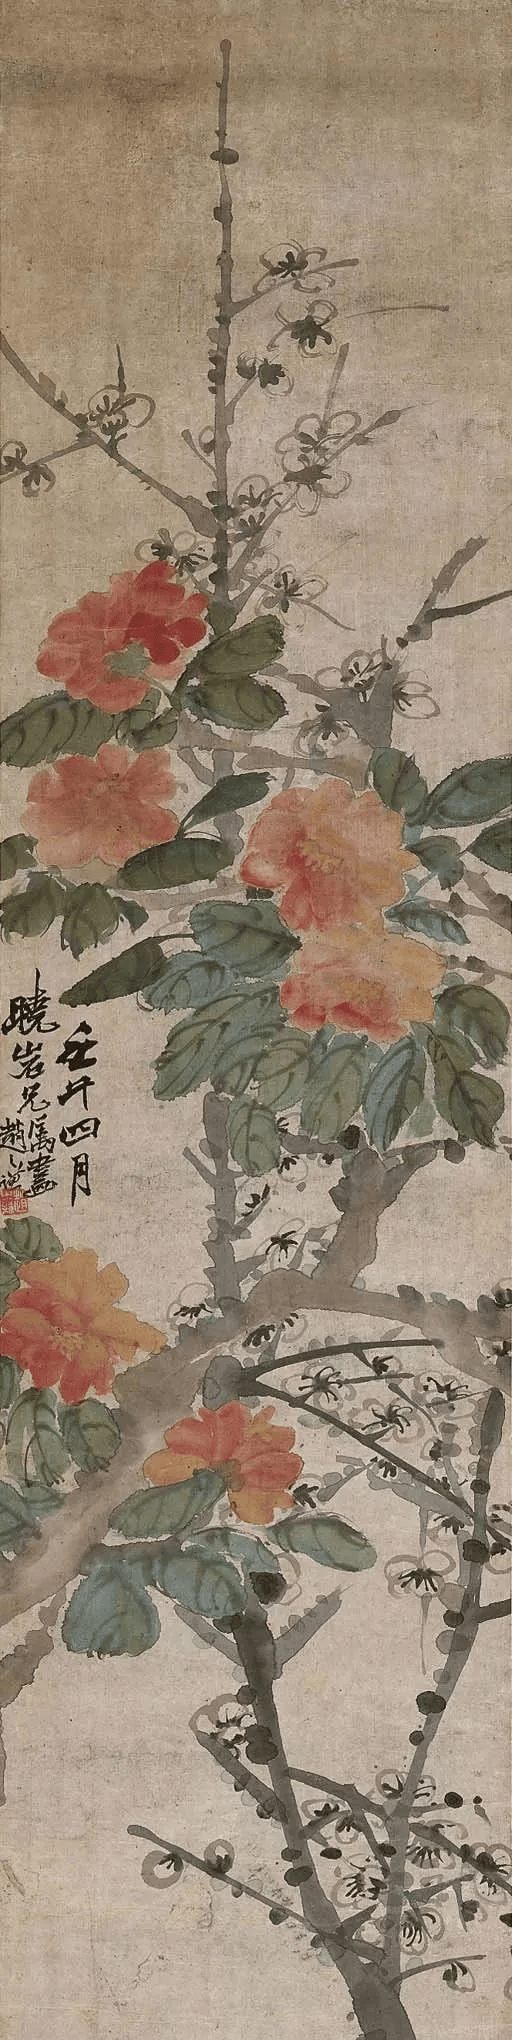 壬午四月
曉岩兄屬畫
趙之謙